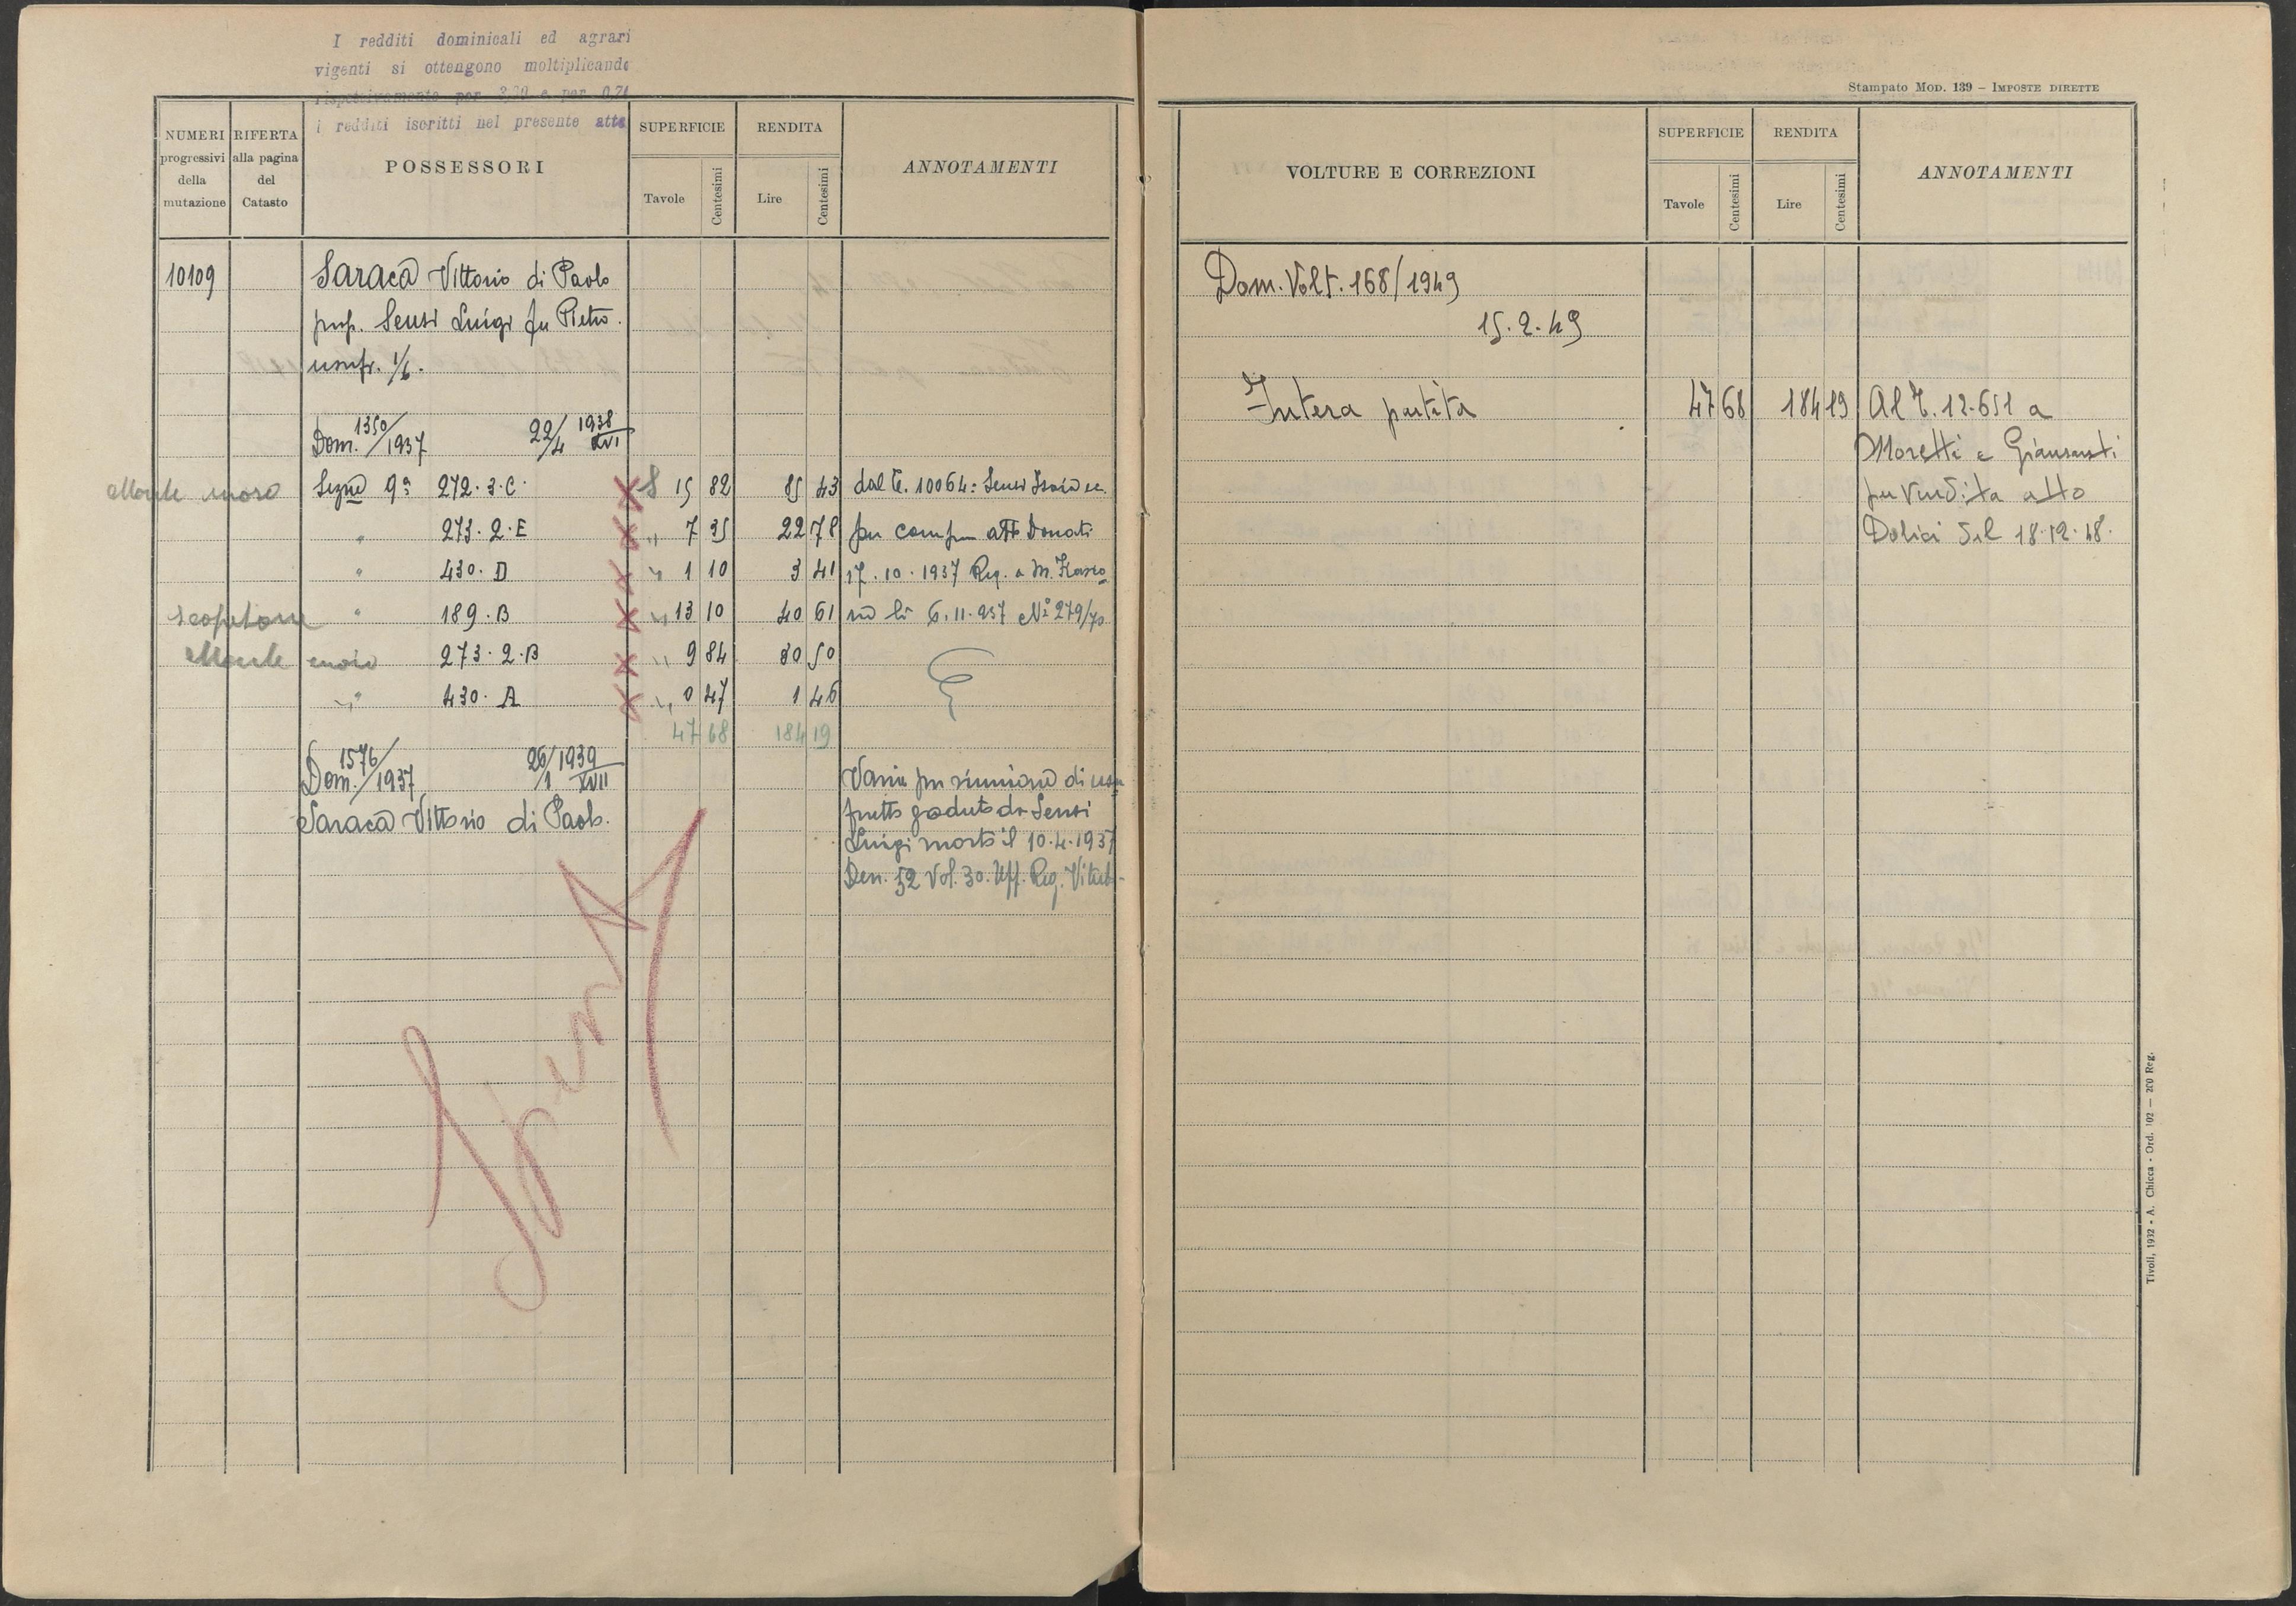 I redditi dominicali ed agrari
vigenti si ottengono moltiplicando
rispettivamente per 3,20 e per 0,74
i redditi iscritti nel presente atto
NUMERI progressivi della mutazione
RIFERTA alla pagina del Catasto
POSSESSORI
SUPERFICIE
Tavole Centesimi
RENDITA
Lire Centesimi
ANNOTAMENTI
10109 Saraca Vittorio di Paolo
prop. Sensi Luigi fu Pietro.
usufr. 1/6.
Dom. 1350/1937 22/4 1938 XVI
Monte moro Segne 9ª 272.3.C. X S 15 82 85 43 dal T. 10064: Sensi
" 273.2.E X " 7 35 22 78 per compra atto Donati
" 430.D X " 1 10 3 41 17.10.1937 Reg. a M.
scopetone " 189.B X " 13 10 40 61 ne lì 6.11.937 N° 279/70
Monte moro 273.2.B X " 9 84 30 50
" 430.A X " 0 47 1 46
47 68 184 19
Dom. 1576/1937 26/1 1939 XVII
Saraca Vittorio di Paolo.
Varia per riunione di usu
frutto goduto da Sensi
Luigi morto il 10.4.1937
Den. 52 Vol. 30. Uff. Reg. Viterb.
Spenta
Stampato MOD. 139 – IMPOSTE DIRETTE
VOLTURE E CORREZIONI
SUPERFICIE
Tavole Centesimi
RENDITA
Lire Centesimi
ANNOTAMENTI
Dom. Volt. 168/1949
15.2.49
Intera partita 47 68 184 19 Al T. 12.651 a
Moretti e Giansanti
per vendita atto
Dolici del 18.12.48.
Tivoli, 1932 - A. Chicca - Ord. 102 — 200 Reg.